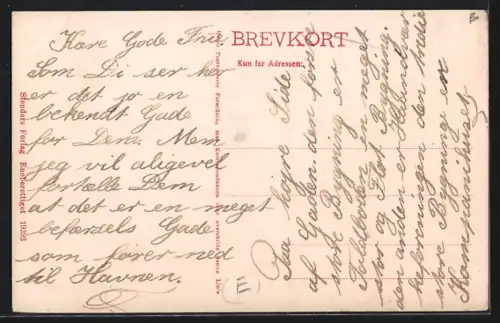 Kære Gode Frue.
Som Di ser her
er det jo en
bekendt Gade
for Dem. Mem
jeg vil aligevel
fortælle Dem
at det er en meget
befærsels Gade
som fører ned
til Havnen.
BREVKORT
Kun for Adressen:
Paa højre Side
af Gaden. den første
store Bygning er
Toldboden en meget
stor og Flot Bygning.
den anden er
den tredie
store Bygning er
Kompanihuset
Stenders Forlag Eneberettiget 19393